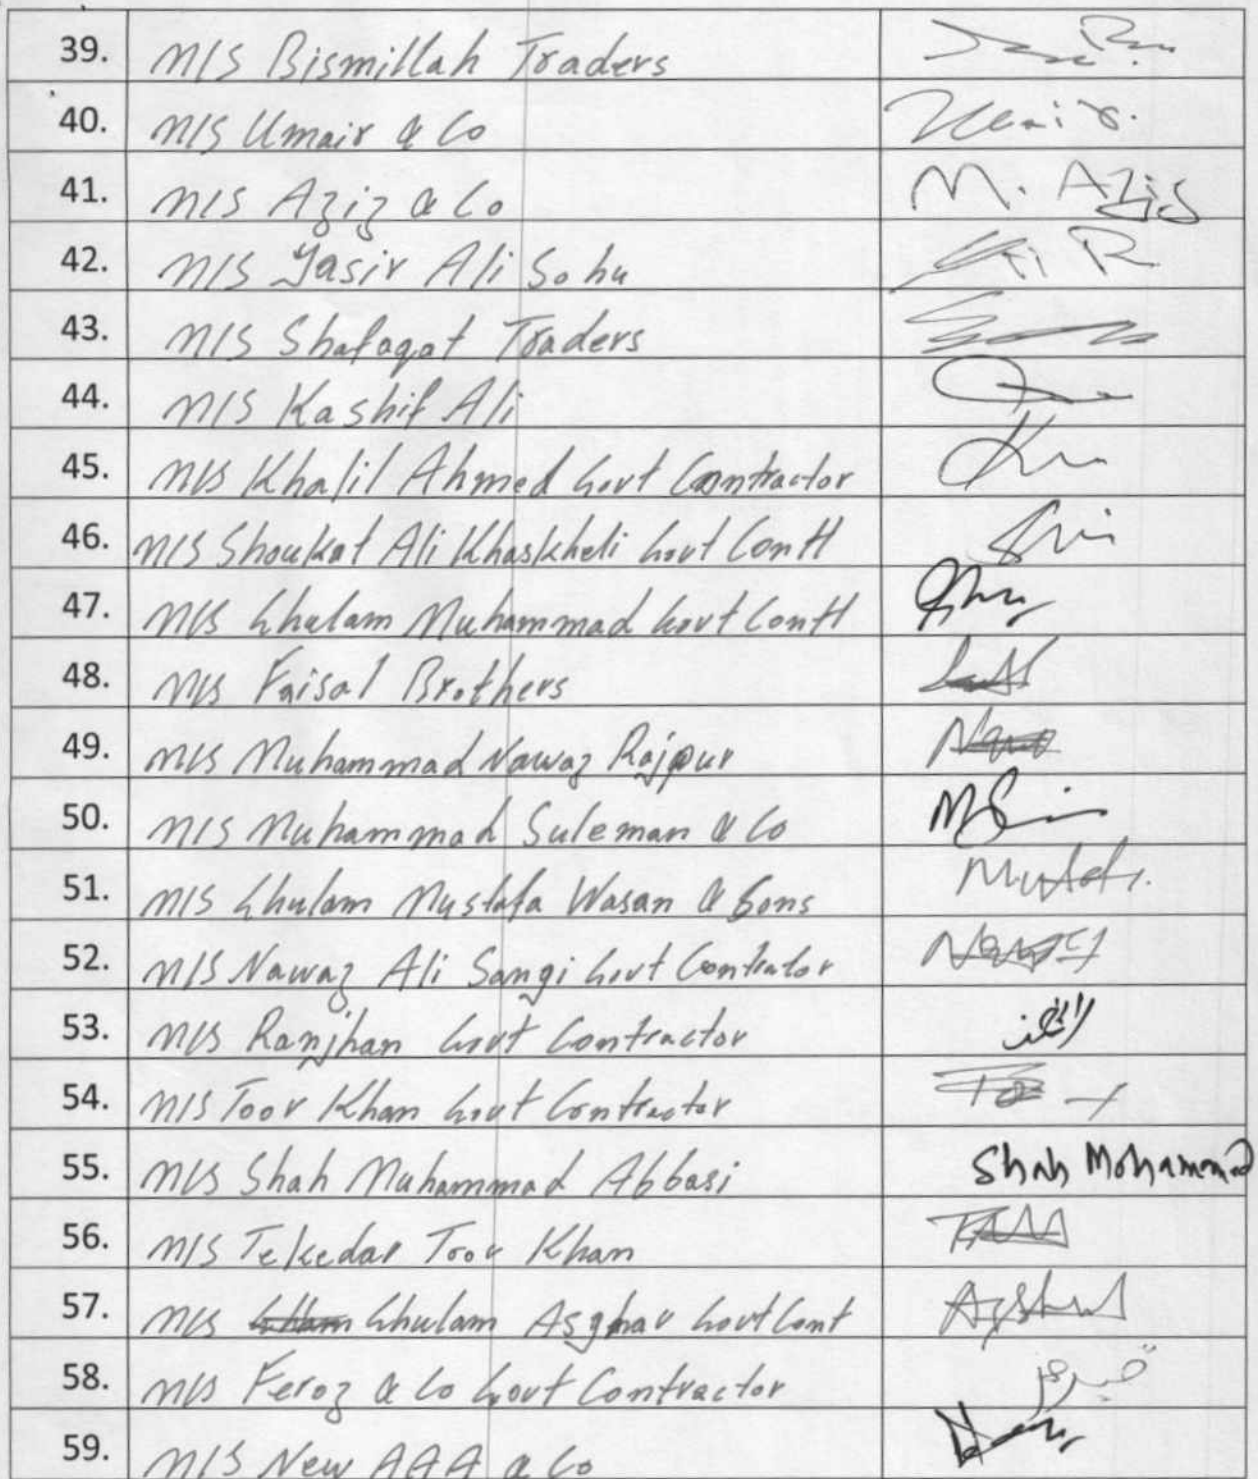 39. M/S Bismillah Traders
40. M/S Umair & Co Umair.
41. M/S Aziz & Co M. Aziz
42. M/S Yasir Ali Sohu
43. M/S Shafaqat Traders
44. M/S Kashif Ali
45. M/S Khalil Ahmed Govt Contractor
46. M/S Shoukat Ali Khaskheli Govt Contt
47. M/S Ghulam Muhammad Govt Contt
48. M/S Faisal Brothers
49. M/S Muhammad Nawaz Rajpur
50. M/S Muhammad Suleman & Co
51. M/S Ghulam Mustafa Wasan & Sons
52. M/S Nawaz Ali Sangi Govt Contrator
53. M/S Ranjhan Govt Contractor
54. M/S Toor Khan Govt Contractor
55. M/S Shah Muhammad Abbasi Shah Mohammad
56. M/S Tekedar Toor Khan
57. M/S Ghulam Asghar Govt Cont
58. M/S Feroz & Co Govt Contractor
59. M/S New AAA & Co